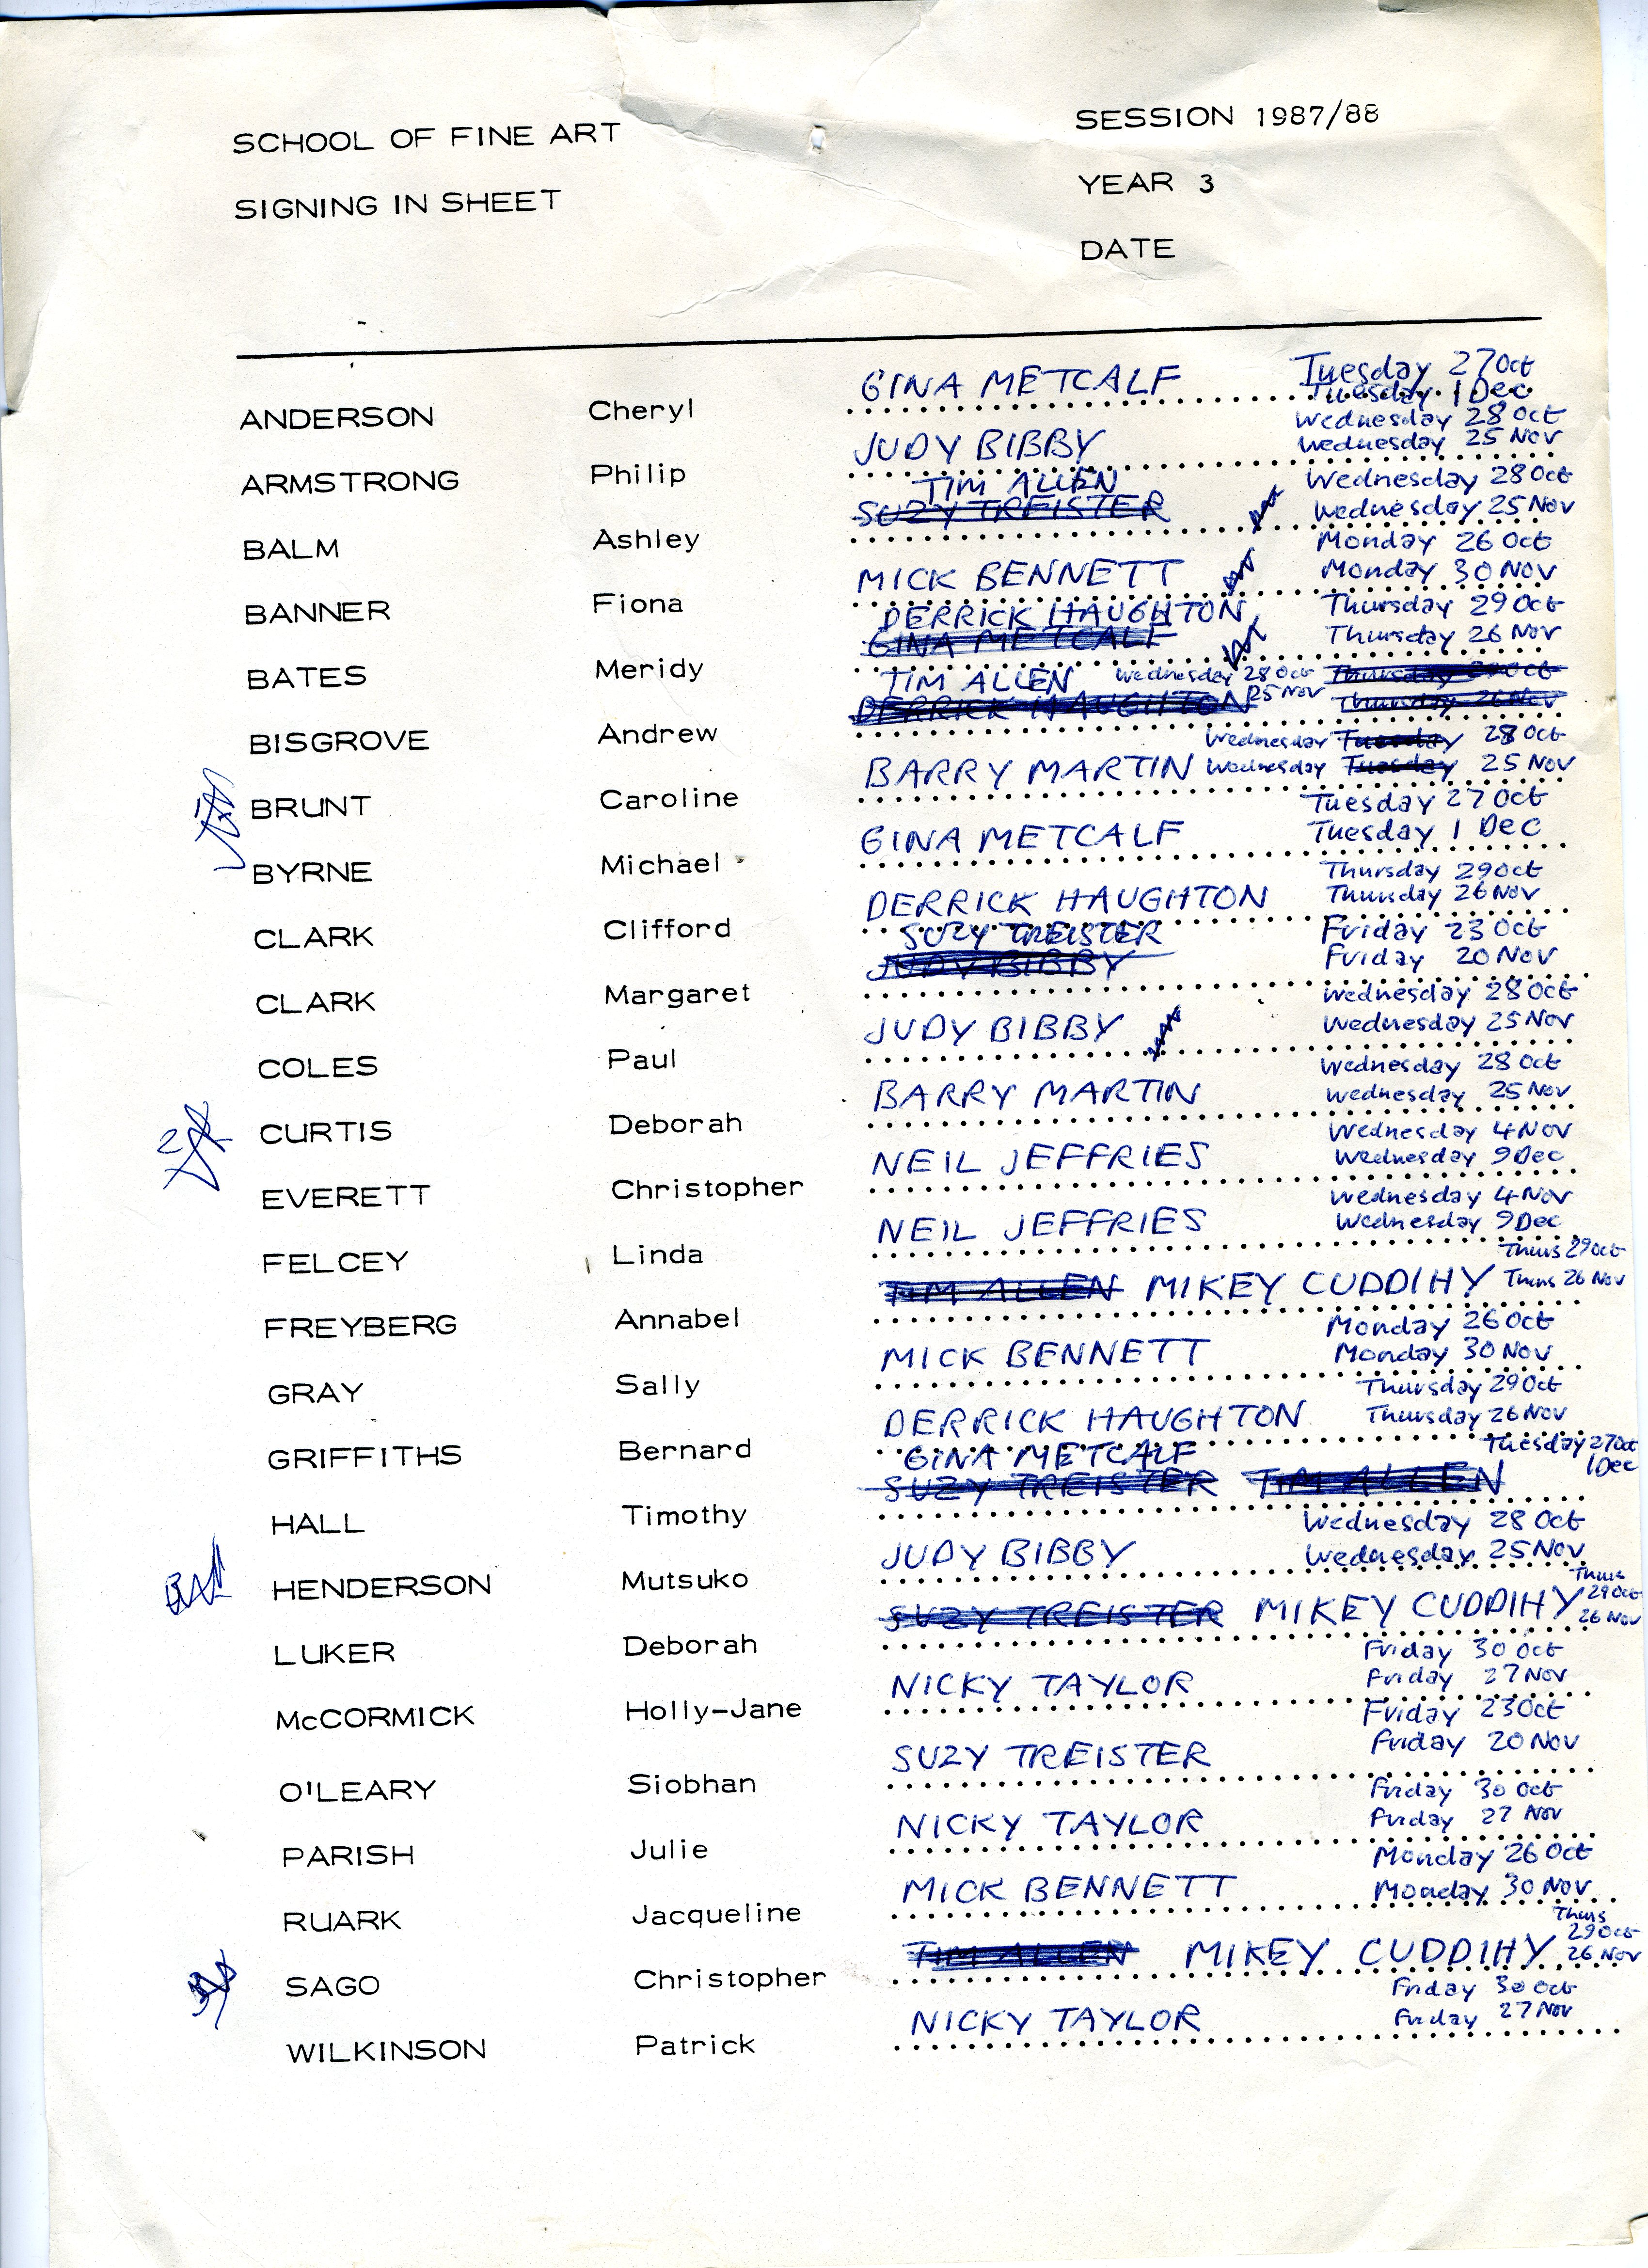 SCHOOL OF FINE ART SESSION 1987/88
SIGNING IN SHEET YEAR 3
DATE
GINA METCALF Tuesday 27 Oct
Tuesday 1 Dec
ANDERSON Cheryl
Wednesday 28 Oct
JUDY BIBBY Wednesday 25 Nov
ARMSTRONG Philip
TIM ALLEN Wednesday 28 Oct
SUZY TREISTER Wednesday 25 Nov
BALM Ashley
Monday 26 Oct
MICK BENNETT Monday 30 Nov
BANNER Fiona
DERRICK HAUGHTON Thursday 29 Oct
GINA METCALF Thursday 26 Nov
BATES Meridy
TIM ALLEN Wednesday 28 Oct Thursday 29 Oct
DERRICK HAUGHTON 25 Nov Thursday 26 Nov
BISGROVE Andrew
Wednesday Tuesday 28 Oct
BARRY MARTIN Wednesday Tuesday 25 Nov
BRUNT Caroline
Tuesday 27 Oct
GINA METCALF Tuesday 1 Dec
BYRNE Michael
Thursday 29 Oct
DERRICK HAUGHTON Thursday 26 Nov
CLARK Clifford
SUZY TREISTER Friday 23 Oct
JUDY BIBBY Friday 20 Nov
CLARK Margaret
Wednesday 28 Oct
JUDY BIBBY Wednesday 25 Nov
COLES Paul
Wednesday 28 Oct
BARRY MARTIN Wednesday 25 Nov
CURTIS Deborah
Wednesday 4 Nov
NEIL JEFFRIES Wednesday 9 Dec
EVERETT Christopher
Wednesday 4 Nov
NEIL JEFFRIES Wednesday 9 Dec
FELCEY Linda
Thurs 29 Oct
TIM ALLEN MIKEY CUDDIHY Thurs 26 Nov
FREYBERG Annabel
Monday 26 Oct
MICK BENNETT Monday 30 Nov
GRAY Sally
Thursday 29 Oct
DERRICK HAUGHTON Thursday 26 Nov
GRIFFITHS Bernard
GINA METCALF Tuesday 27 Oct
1 Dec
SUZY TREISTER TIM ALLEN
HALL Timothy
Wednesday 28 Oct
JUDY BIBBY Wednesday 25 Nov
HENDERSON Mutsuko
Thurs
29 Oct
SUZY TREISTER MIKEY CUDDIHY 26 Nov
LUKER Deborah
Friday 30 Oct
NICKY TAYLOR Friday 27 Nov
McCORMICK Holly-Jane
Friday 23 Oct
SUZY TREISTER Friday 20 Nov
O'LEARY Siobhan
Friday 30 Oct
NICKY TAYLOR Friday 27 Nov
PARISH Julie
Monday 26 Oct
MICK BENNETT Monday 30 Nov
RUARK Jacqueline
Thurs
29 Oct
TIM ALLEN MIKEY CUDDIHY 26 Nov
SAGO Christopher
Friday 30 Oct
NICKY TAYLOR Friday 27 Nov
WILKINSON Patrick